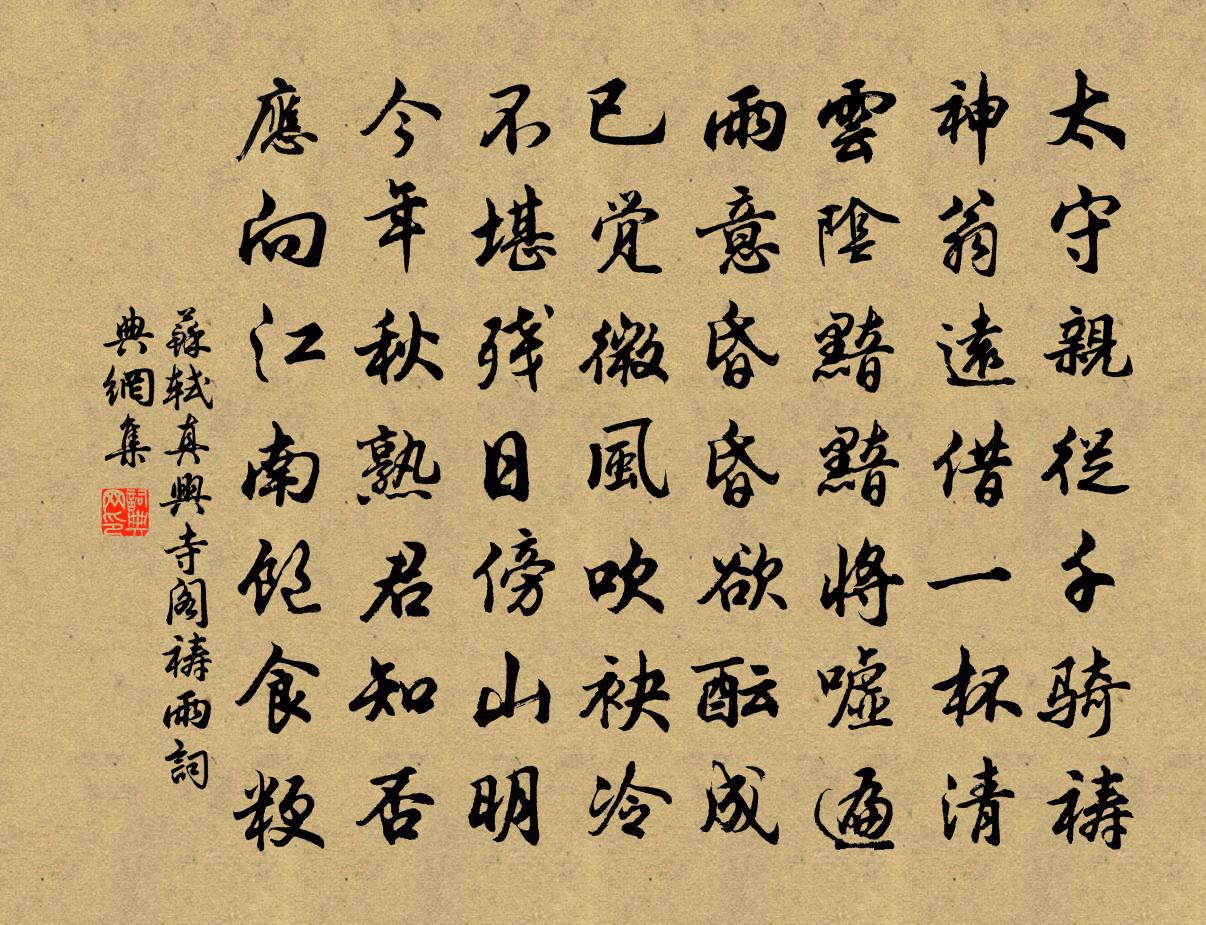 太守親從千騎禱
神翁遠借一杯清
雲陰黯黯將噓遍
雨意昏昏欲酝成
已覚微風吹袂冷
不堪残日傍山明
今年秋熟君知否
應向江南飽食粳
蘇軾真興寺阁禱雨詞
典網集
詞典網印